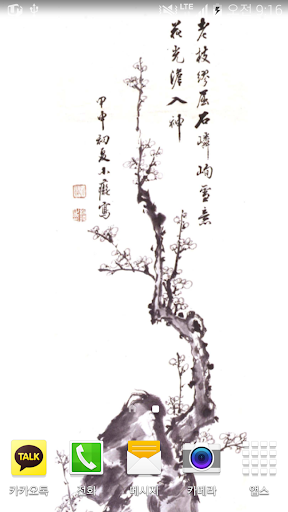 LTE 오전 9:16
老枝繆屈石嶙峋雪意
花光澹入神
甲申初夏小癡寫
TALK
카카오톡 전화 메시지 카메라 앱스